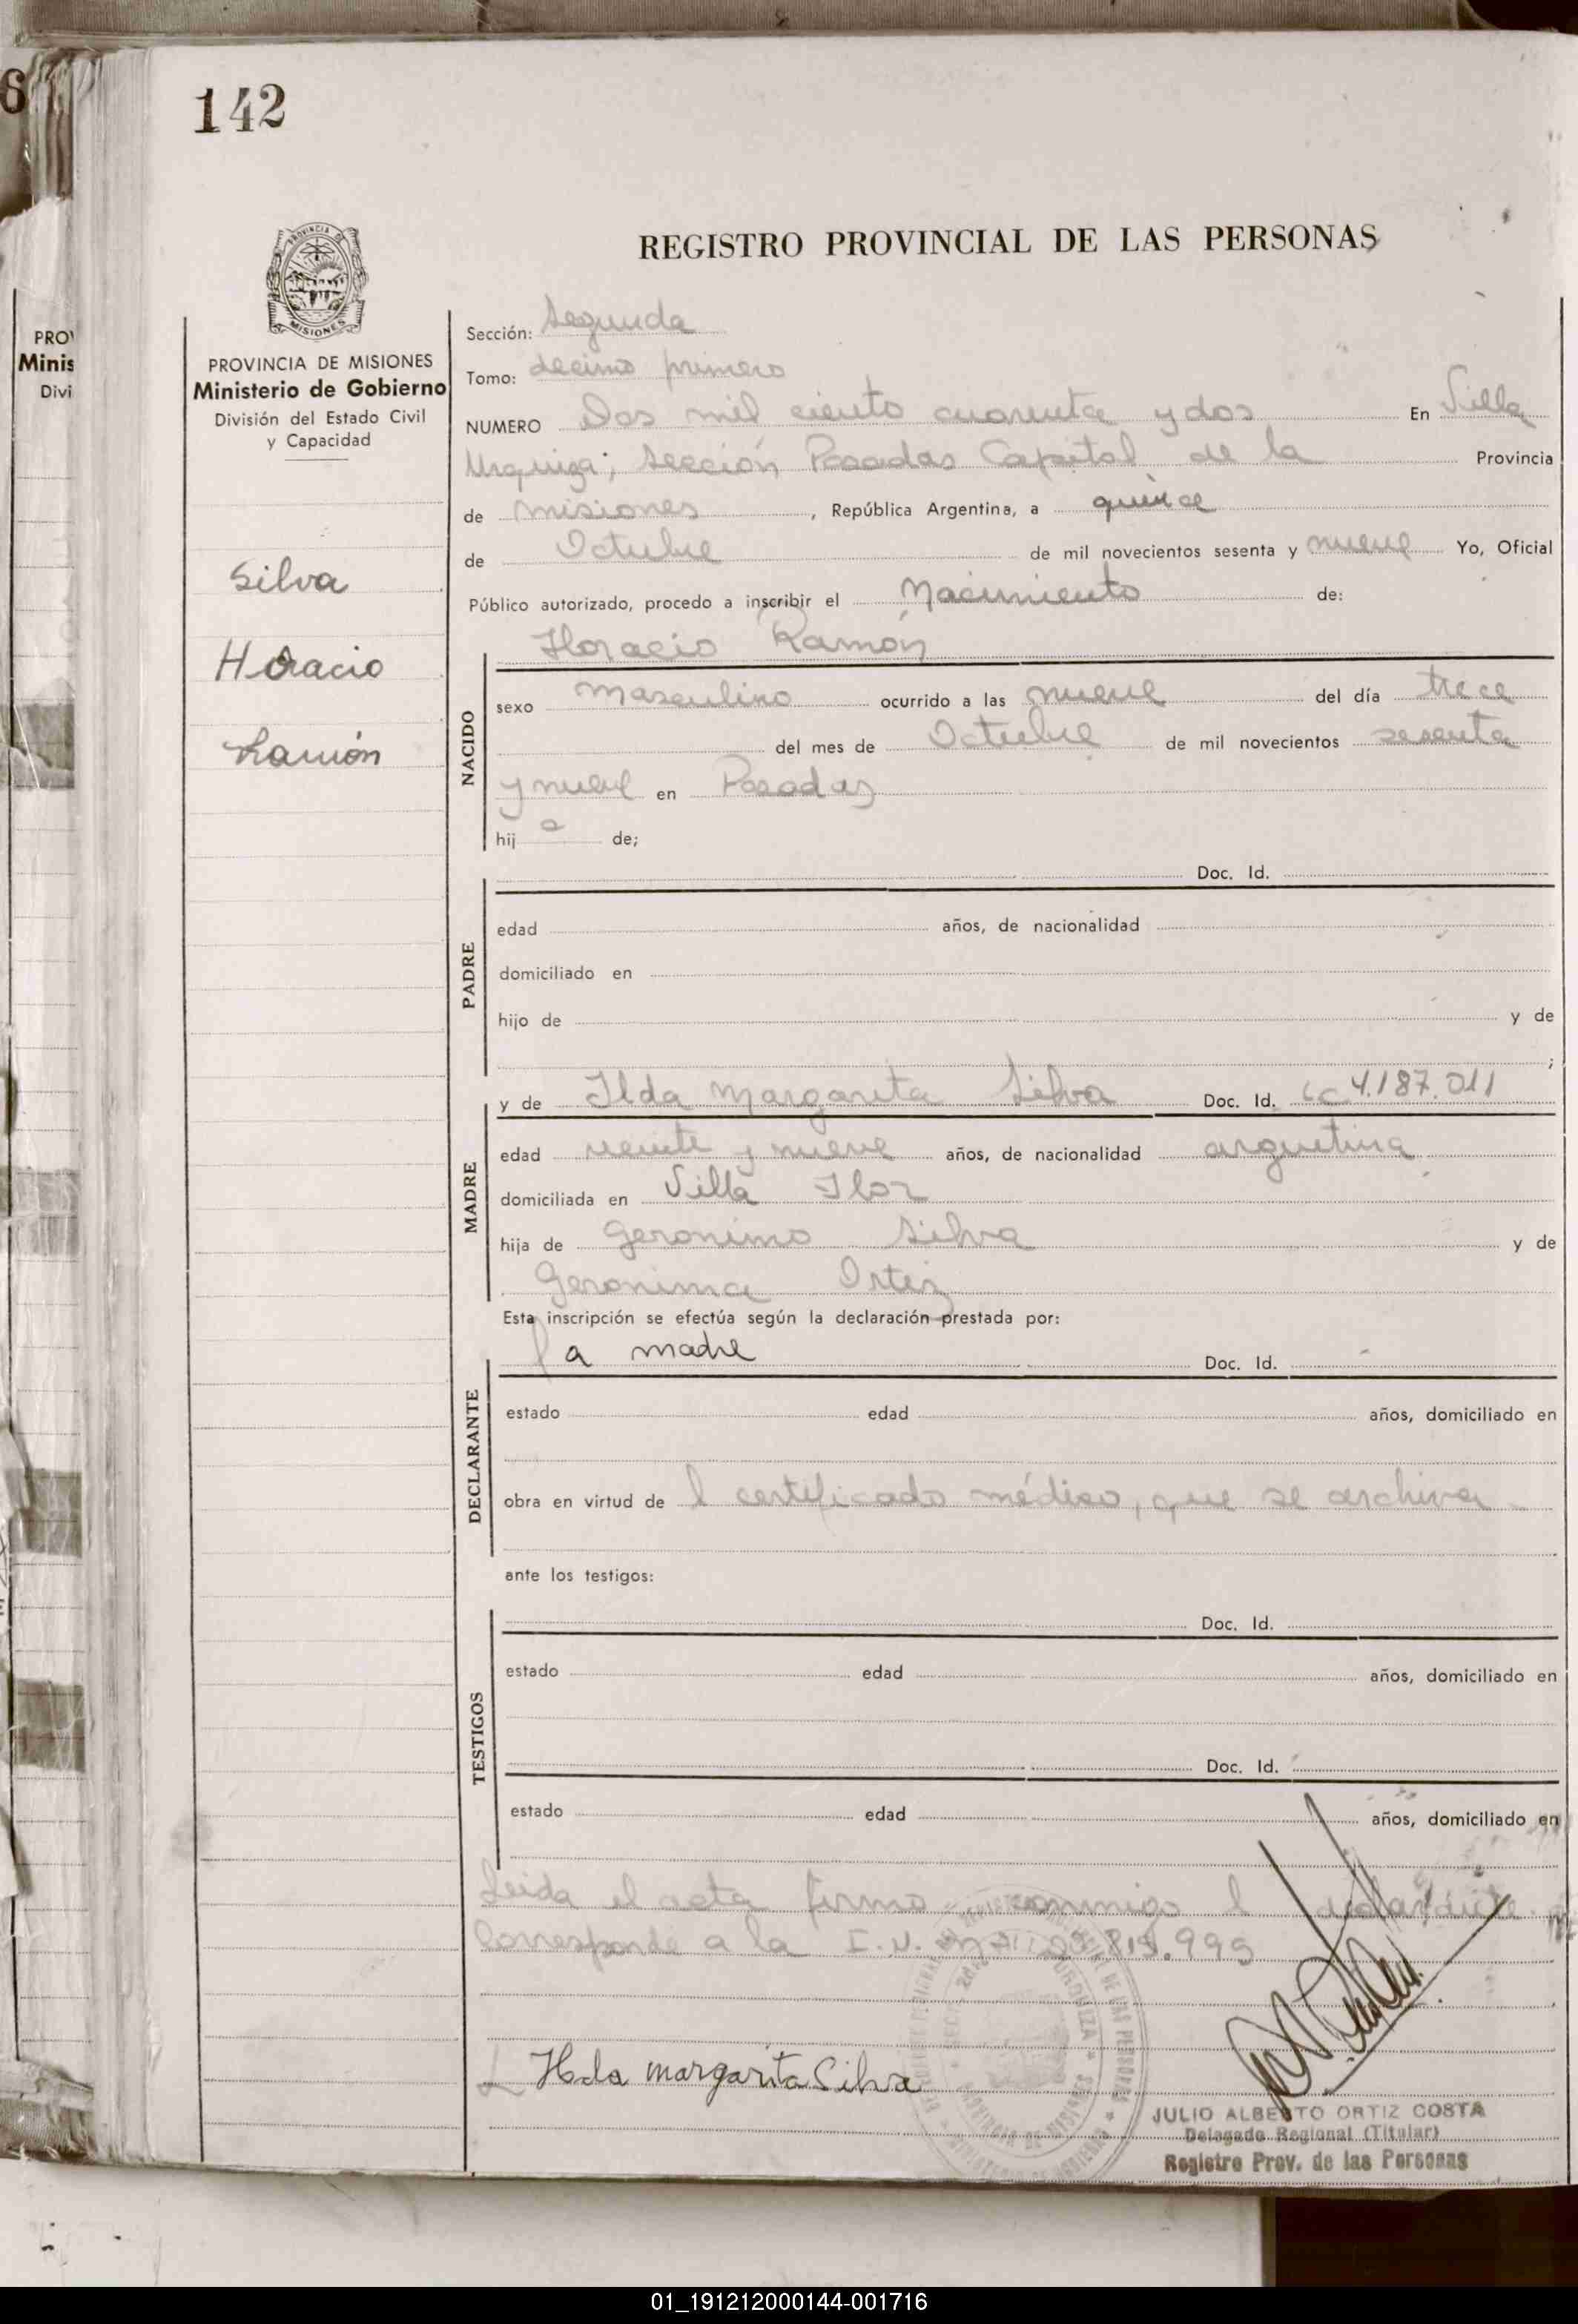 142
REGISTRO PROVINCIAL DE LAS PERSONAS
PROVINCIA DE MISIONES
Ministerio de Gobierno
División del Estado Civil
y Capacidad
Silva
Horacio
Ramón
Sección: Segunda
Tomo: decimo primero
NUMERO Dos mil ciento cuarenta y dos En Villa
Urquiza; Sección Posadas Capital de la Provincia
de Misiones, República Argentina, a quince
de Octubre de mil novecientos sesenta y nueve Yo, Oficial
Público autorizado, procedo a inscribir el Nacimiento de:
Horacio Ramón
NACIDO
sexo masculino ocurrido a las nueve del día trece
del mes de Octubre de mil novecientos sesenta
y nueve en Posadas
hij o de;
Doc. Id.
PADRE
edad años, de nacionalidad
domiciliado en
hijo de y de
;
y de Ilda Margarita Silva Doc. Id. LC 4.187.011
MADRE
edad veinte y nueve años, de nacionalidad argentina
domiciliada en Villa Flor
hija de Geronimo Silva y de
Geronima Ortiz
Esta inscripción se efectúa según la declaración prestada por:
la madre Doc. Id.
DECLARANTE
estado edad años, domiciliado en
obra en virtud de l certificado médico, que se archiva
ante los testigos:
Doc. Id.
TESTIGOS
estado edad años, domiciliado en
Doc. Id.
estado edad años, domiciliado en
Leida el acta firma conmigo l declarante.
Corresponde a la
Ilda margarita Silva
JULIO ALBERTO ORTIZ COSTA
Delegado Regional (Titular)
Registro Prov. de las Personas
01_191212000144-001716